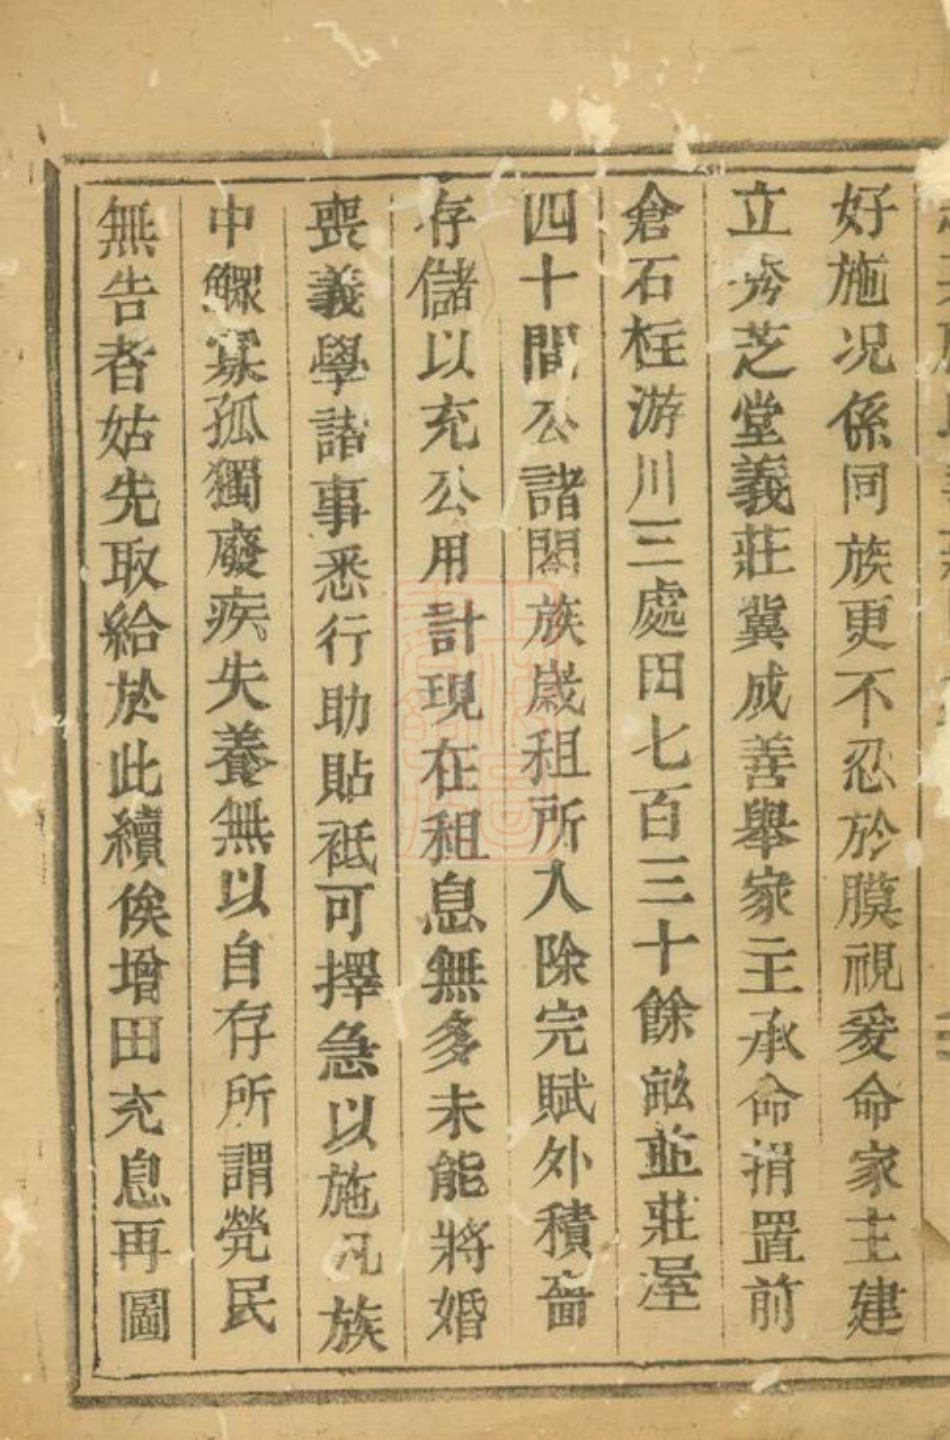 好施况係同族更不忍於膜視爰命家主建
立秀芝堂義莊冀成善舉家主承命捐置前
倉石柱游川三處田七百三十餘畝並莊屋
四十間公諸闔族歲租所入除完賦外積嗇
存儲以充公用計現在租息無多未能將婚
喪義學諸事悉行助貼祗可擇急以施凡族
中鰥寡孤獨廢疾失養無以自存所謂煢民
無告者姑先取給於此續俟增田充息再圖